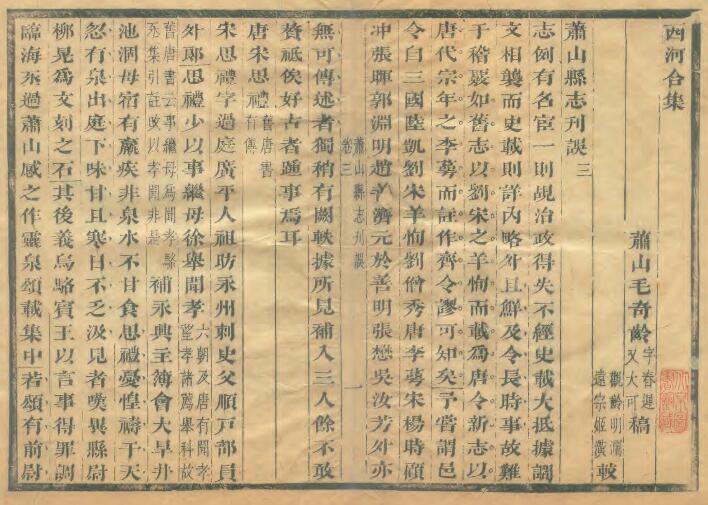 西河合集
蕭山毛奇齡字春遲又大可稿
觀齡明灡
遠宗姬潢較
蕭山縣志刊誤三
志例有名宦一則覘治政得失不經史載大抵據調
文相襲而史載則詳内略外且鮮及令長時事故難
于稽覈如舊志以劉宋之羊恂而載爲唐令新志以
唐代宗年之李蕚而註作齊令謬可知矣予嘗謂邑
令自三國陸凱劉宋羊恂劉僧秀唐李蕚宋楊時顧
冲張暉郭淵明趙善濟元於善明張懋吳汝芳外亦
蕭山縣志刊誤
卷三
一
無可傳述者獨稍有闕軼據所見補入三人餘不敢
贅祗俟好古者踵事焉耳
唐宋思禮舊唐書有傳
宋思禮字過庭廣平人祖昉永州刺史父順戸部員
外郎思禮少以事繼母徐舉聞孝六朝及唐有聞孝望孝諸薦舉科故
舊唐書云事繼母爲聞孝駱丞集引註改以孝聞非是補永興主簿會大旱井
池涸母宿有羸疾非泉水不甘食思禮憂惶禱于天
忽有泉出庭下味甘且寒日不乏汲見者嘆異縣尉
柳晃爲文刻之石其後義烏駱賓王以言事得罪調
臨海丞過蕭山感之作靈泉頌載集中若頌有前尉